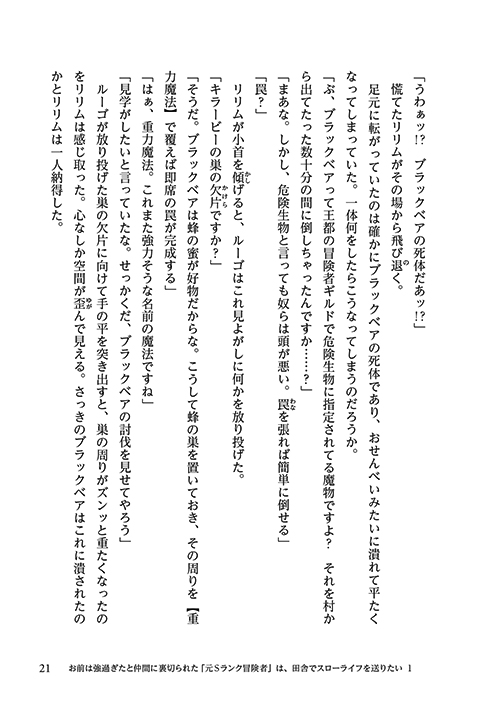 「うわぁッ!?　ブラックベアの死体だあッ!?」
慌てたリリムがその場から飛び退く。
足元に転がっていたのは確かにブラックベアの死体であり、おせんべいみたいに潰れて平たく
なってしまっていた。一体何をしたらこうなってしまうのだろうか。
「ぶ、ブラックベアって王都の冒険者ギルドで危険生物に指定されてる魔物ですよ?　それを村か
ら出てたった数十分の間に倒しちゃったんですか……?」
「まあな。しかし、危険生物と言っても奴らは頭が悪い。罠を張れば簡単に倒せる」
「罠?」
リリムが小首を傾げると、ルーゴはこれ見よがしに何かを放り投げた。
「キラービーの巣の欠片ですか?」
「そうだ。ブラックベアは蜂の蜜が好物だからな。こうして蜂の巣を置いておき、その周りを【重
力魔法】で覆えば即席の罠が完成する」
「はぁ、重力魔法。これまた強力そうな名前の魔法ですね」
「見学がしたいと言っていたな。せっかくだ、ブラックベアの討伐を見せてやろう」
ルーゴが放り投げた巣の欠片に向けて手の平を突き出すと、巣の周りがズンッと重たくなったの
をリリムは感じ取った。心なしか空間が歪んで見える。さっきのブラックベアはこれに潰されたの
かとリリムは一人納得した。
21　お前は強過ぎたと仲間に裏切られた「元Sランク冒険者」は、田舎でスローライフを送りたい 1